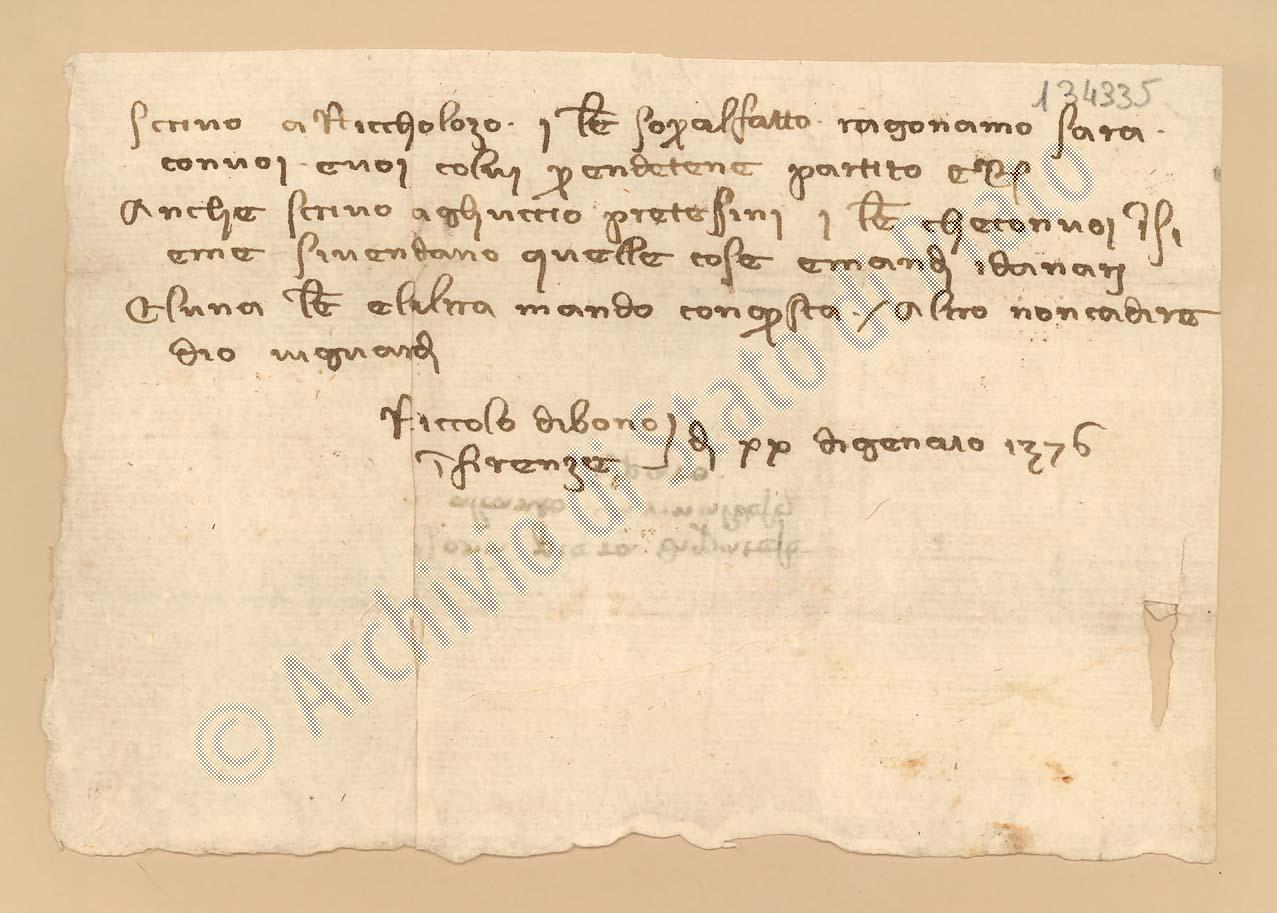 134335
Scrivo a Niccholozo · j lr̃a sopralfatto · ragonamo sara ·
convoi · evoi colui prendetene partito
Anche scrivo aghuccio pretesini j lr̃a checonvoi insi
eme sivendano quelle cose emandi idanari
Eluna lr̃a elaltra mando conquesta · / Altro noncadire
dio viguardi
Niccolo dibono j
in firenze di xx digenaio 1376
© Archivio di Stato di Prato